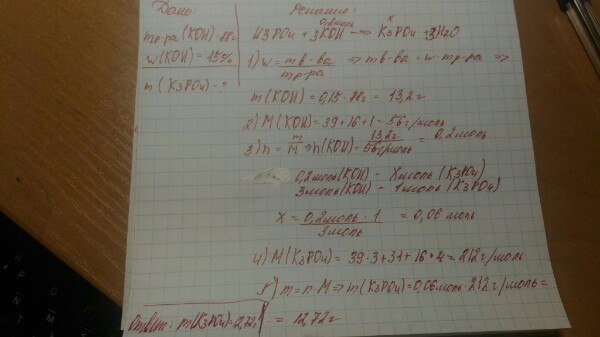 Дано:
mр-ра (KOH) = 88г
w(KOH) = 15%
m(K3PO4) - ?
Решение:
0,2моль x
H3PO4 + 3KOH → K3PO4 + 3H2O
1) w = mв-ва / mр-ра => mв-ва = w · mр-ра =>
m(KOH) = 0,15 · 88г = 13,2г
2) M(KOH) = 39 + 16 + 1 = 56г/моль
3) n = m/M => n(KOH) = 13,2г / 56г/моль = 0,2моль
0,2моль(KOH) - Xмоль (K3PO4)
3моль(KOH) - 1моль (K3PO4)
X = 0,2моль · 1 / 3моль = 0,06 моль
4) M(K3PO4) = 39·3 + 31 + 16·4 = 212г/моль
5) m = n · M => m(K3PO4) = 0,06моль · 212г/моль =
= 12,72г
Ответ: m(K3PO4) = 12,72г